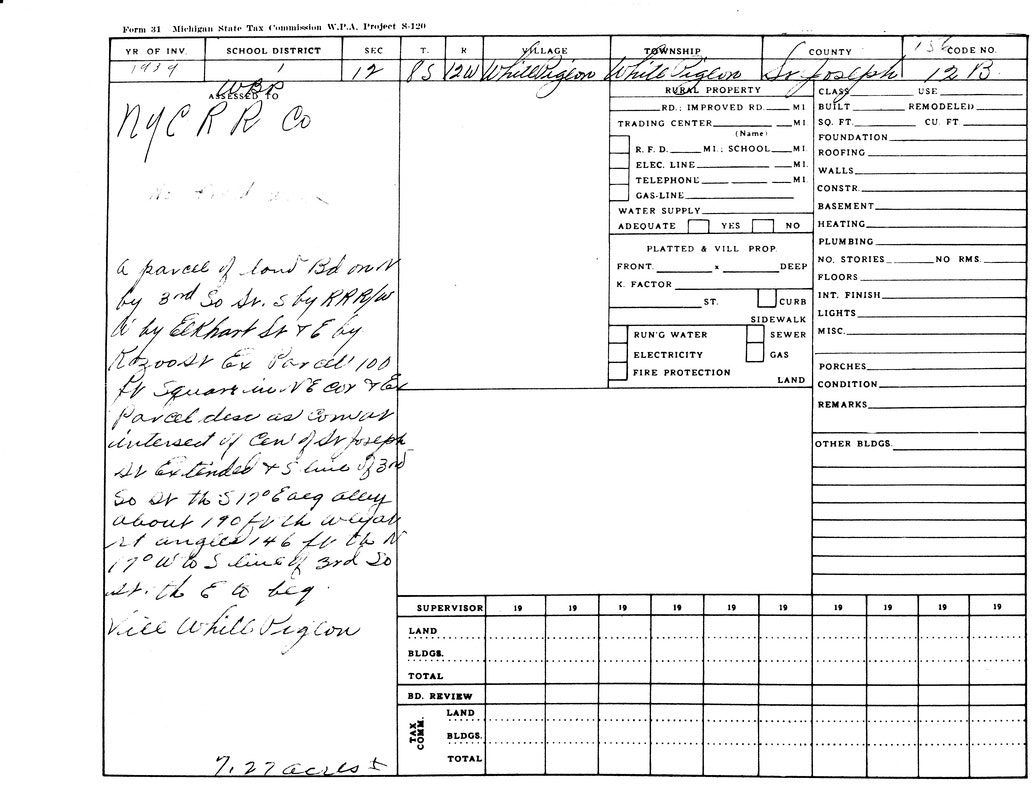 Form 31 Michigan State Tax Commission W.P.A. Project S-120
YR OF INV. SCHOOL DISTRICT SEC T. R VILLAGE TOWNSHIP COUNTY CODE NO.
1939 1 12 8S 12W White Pigeon White Pigeon St Joseph 12 B
ASSESSED TO
NYC RR Co
a parcel of land Bd on N
by 3rd So St. S by RR R/W
W by Elkhart St & E by
Kazoo St Ex Parcel 100
ft Square in NE cor & Ex
Parcel desc as com at
intersect of Cen of St Joseph
St Extended & S line of 3rd
So St th S 17° E alg alley
about 190 ft th wly at
rt angles 146 ft th N
17° W to S line of 3rd So
st. th E to beg.
Vill White Pigeon
7.27 acres ±
RURAL PROPERTY
RD.; IMPROVED RD. MI.
TRADING CENTER MI.
(Name)
R. F. D. MI.; SCHOOL MI.
ELEC. LINE MI.
TELEPHONE MI.
GAS-LINE
WATER SUPPLY
ADEQUATE YES NO
PLATTED & VILL PROP.
FRONT. x DEEP
K. FACTOR
ST. CURB
SIDEWALK
RUN'G WATER SEWER
ELECTRICITY GAS
FIRE PROTECTION
LAND
CLASS USE
BUILT REMODELED
SQ. FT. CU. FT.
FOUNDATION
ROOFING
WALLS
CONSTR.
BASEMENT
HEATING
PLUMBING
NO. STORIES NO RMS.
FLOORS
INT. FINISH
LIGHTS
MISC.
PORCHES
CONDITION
REMARKS
OTHER BLDGS.
SUPERVISOR 19 19 19 19 19 19 19 19 19 19
LAND
BLDGS.
TOTAL
BD. REVIEW
TAX COMM.
LAND
BLDGS.
TOTAL